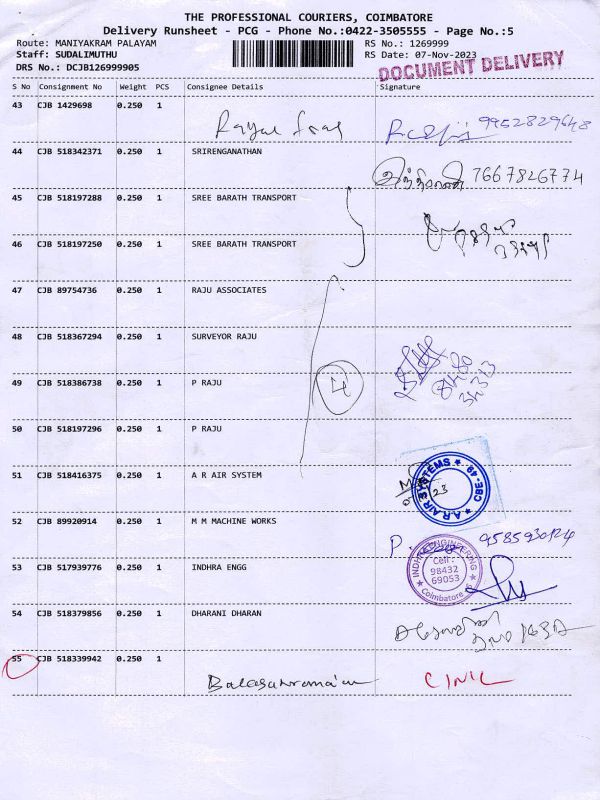 THE PROFESSIONAL COURIERS, COIMBATORE
Delivery Runsheet - PCG - Phone No.:0422-3505555 - Page No.:5
Route: MANIYAKRAM PALAYAM RS No.: 1269999
Staff: SUDALIMUTHU RS Date: 07-Nov-2023
DRS No.: DCJB126999905 DOCUMENT DELIVERY
S No Consignment No Weight PCS Consignee Details Signature
43 CJB 1429698 0.250 1
9952829648
44 CJB 518342371 0.250 1 SRIRENGANATHAN
7667826774
45 CJB 518197288 0.250 1 SREE BARATH TRANSPORT
46 CJB 518197250 0.250 1 SREE BARATH TRANSPORT
47 CJB 89754736 0.250 1 RAJU ASSOCIATES
48 CJB 518367294 0.250 1 SURVEYOR RAJU
49 CJB 518386738 0.250 1 P RAJU
4
50 CJB 518197296 0.250 1 P RAJU
51 CJB 518416375 0.250 1 A R AIR SYSTEM
A.R.AIR SYSTEMS CBE-49
52 CJB 89920914 0.250 1 M M MACHINE WORKS
P.
53 CJB 517939776 0.250 1 INDHRA ENGG
INDHRA ENGINEERING
Cell :
98432
69053
Coimbatore
54 CJB 518379856 0.250 1 DHARANI DHARAN
55 CJB 518339942 0.250 1